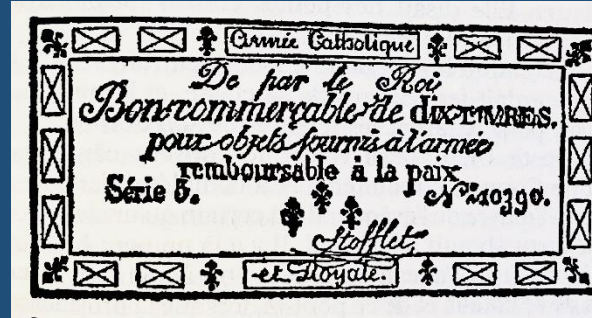 Armée Catholique
De par le Roi
Bon commerçable de DIX LIVRES.
pour objets fournis à l'armée
remboursable à la paix
Série 5. N° 10390.
Stofflet
et Royale.